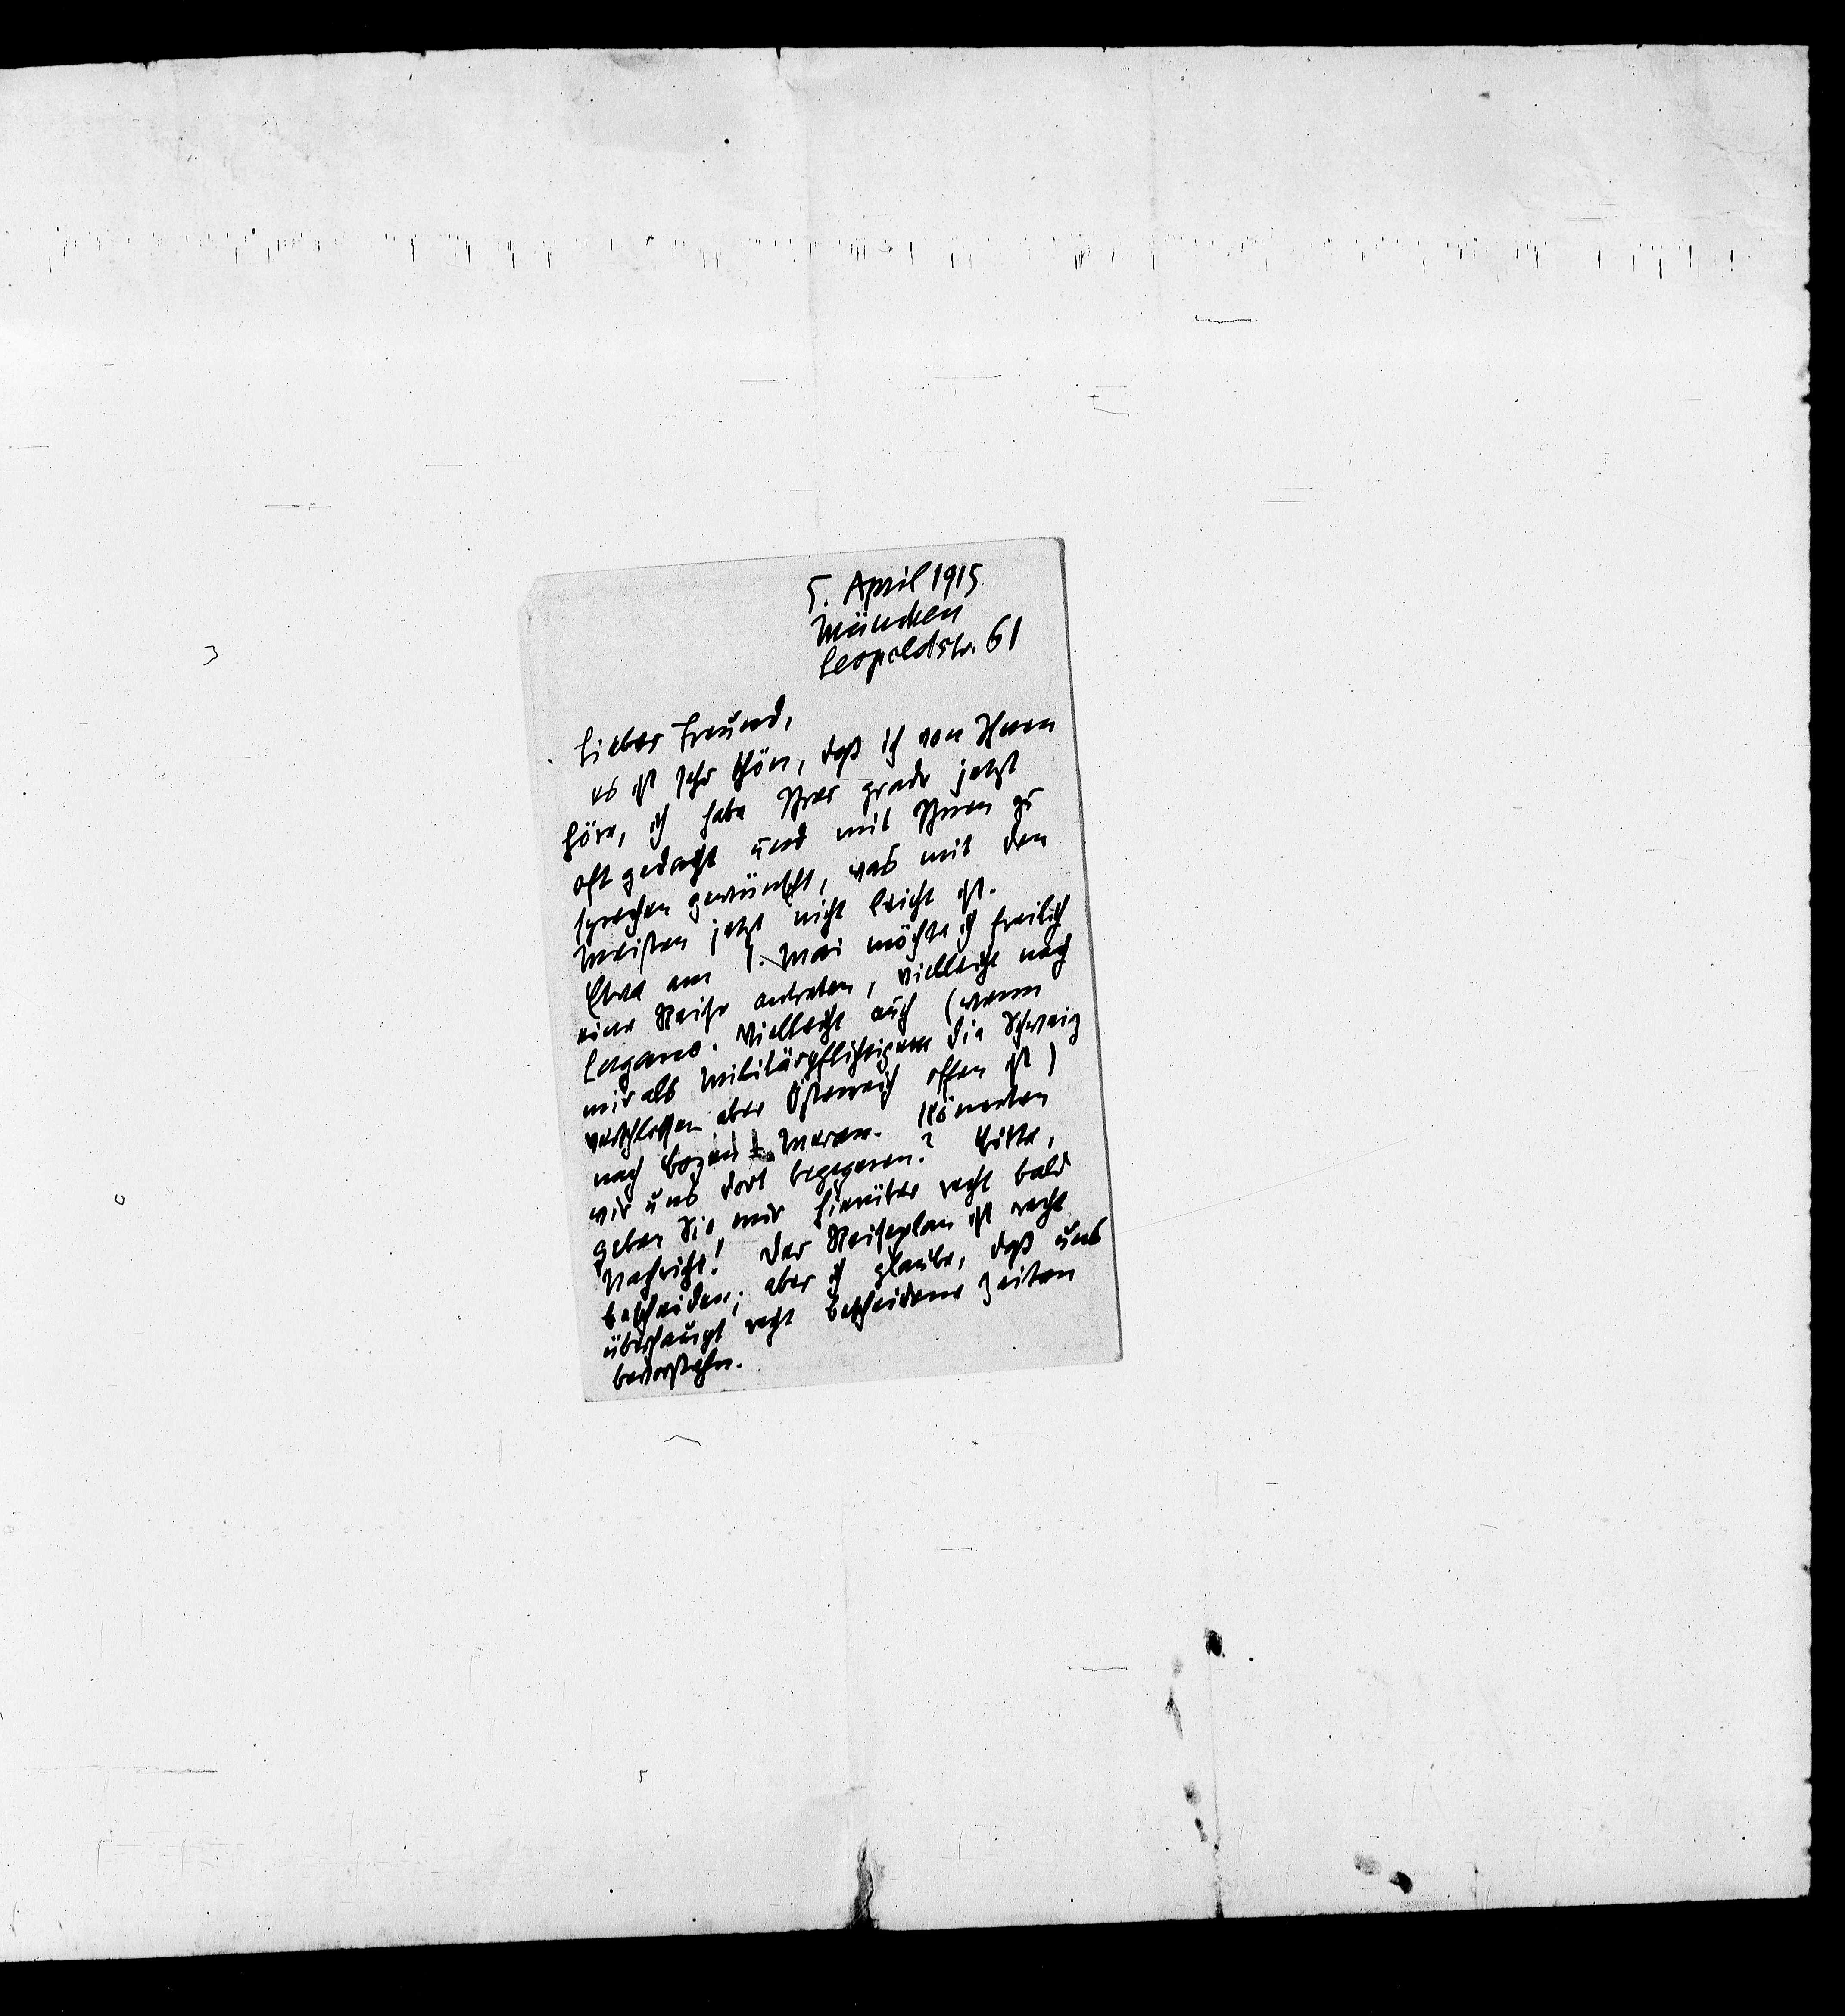 5. April 1915
München
Leopoldstr. 61
Lieber Freund,
es ist sehr schön, daß ich von Ihnen
höre, ich habe Ihrer grade jetzt
oft gedacht und mit Ihnen zu
sprechen gewünscht, was mit den
Meisten jetzt nicht leicht ist.
Etwa am 1. Mai möchte ich freilich
eine Reise antreten, vielleicht nach
Lugano. Vielleicht auch (wenn
mir als Militärpflichtigem die Schweiz
verschlossen aber Österreich offen ist)
nach Bozen Meran. Könnten
wir uns dort begegnen? Bitte,
geben Sie mir hierüber recht bald
Nachricht! Der Reiseplan ist recht
bescheiden; aber ich glaube, daß uns
überhaupt recht bescheidene Zeiten
bevorstehn.